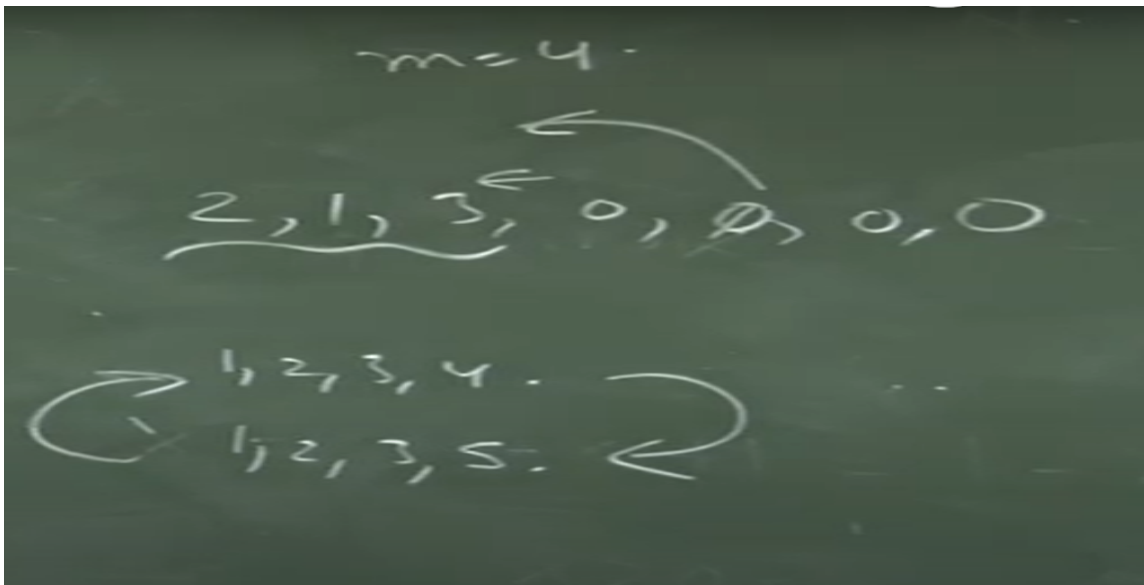 m = 4 .
2, 1, 3, 0, 0, 0, 0
1, 2, 3, 4 .
1, 2, 3, 5 .